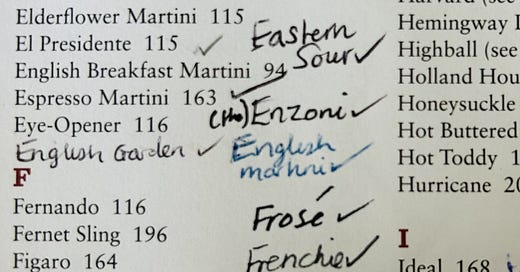 Elderflower Martini 115
El Presidente 115 ✓
English Breakfast Martini 94
Espresso Martini 163 ✓
Eye-Opener 116
English Garden ✓
F
Fernando 116
Fernet Sling 196
Figaro 164
Eastern
Sour ✓
Enzoni ✓
English
martini ✓
Frosé ✓
Frenchie ✓
(see
Hemingway
Highball (see
Holland
Honeysuckle
Hot Buttered
Hot Toddy
Hurricane
I
Ideal 168